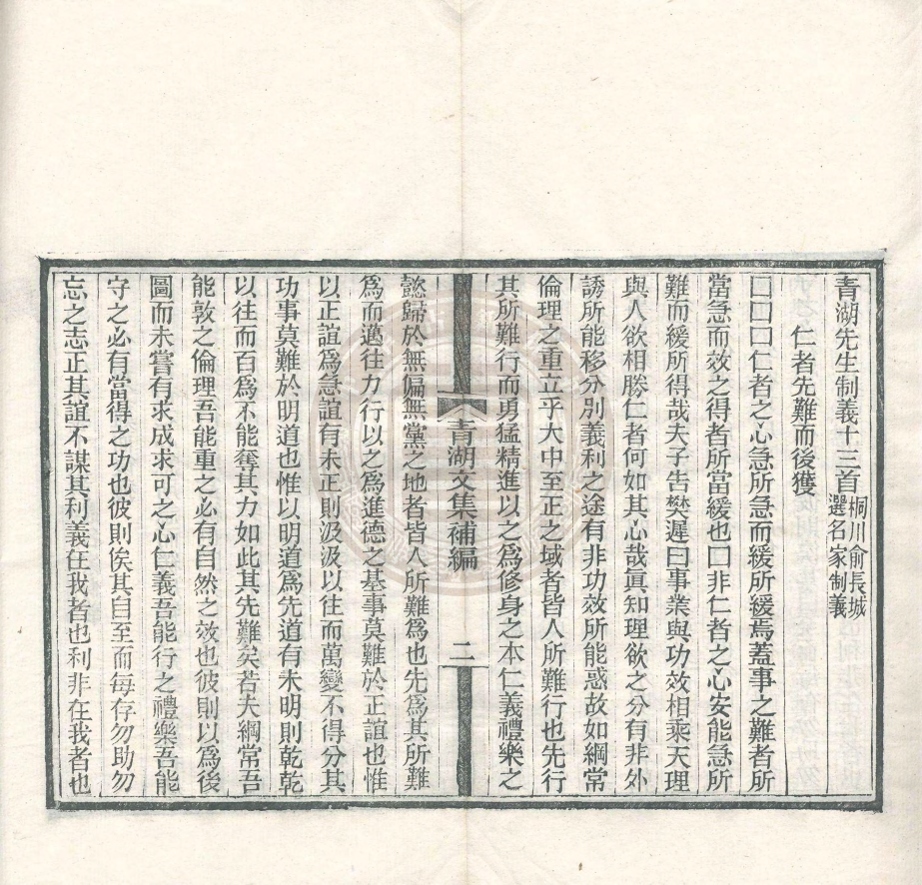 青湖先生制義十三首桐川俞長城選名家制義
仁者先難而後獲
囗囗囗仁者之心急所急而緩所緩焉蓋事之難者所
當急而效之得者所當緩也囗非仁者之心安能急所
難而緩所得哉夫子告樊遲曰事業與功效相乘天理
與人欲相勝仁者何如其心哉眞知理欲之分有非外
誘所能移分別義利之途有非功效所能惑故如綱常
倫理之重立乎大中至正之域者皆人所難行也先行
其所難行而勇猛精進以之爲修身之本仁義禮樂之
青湖文集補編 二
懿歸於無偏無黨之地者皆人所難爲也先爲其所難
爲而邁往力行以之爲進德之基事莫難於正誼也惟
以正誼爲急誼有未正則汲汲以往而萬變不得分其
功事莫難於明道也惟以明道爲先道有未明則乾乾
以往而百爲不能奪其力如此其先難矣若夫綱常吾
能敦之倫理吾能重之必有自然之效也彼則以爲後
圖而未嘗有求成求可之心仁義吾能行之禮樂吾能
守之必有當得之功也彼則俟其自至而每存勿助勿
忘之志正其誼不謀其利義在我者也利非在我者也